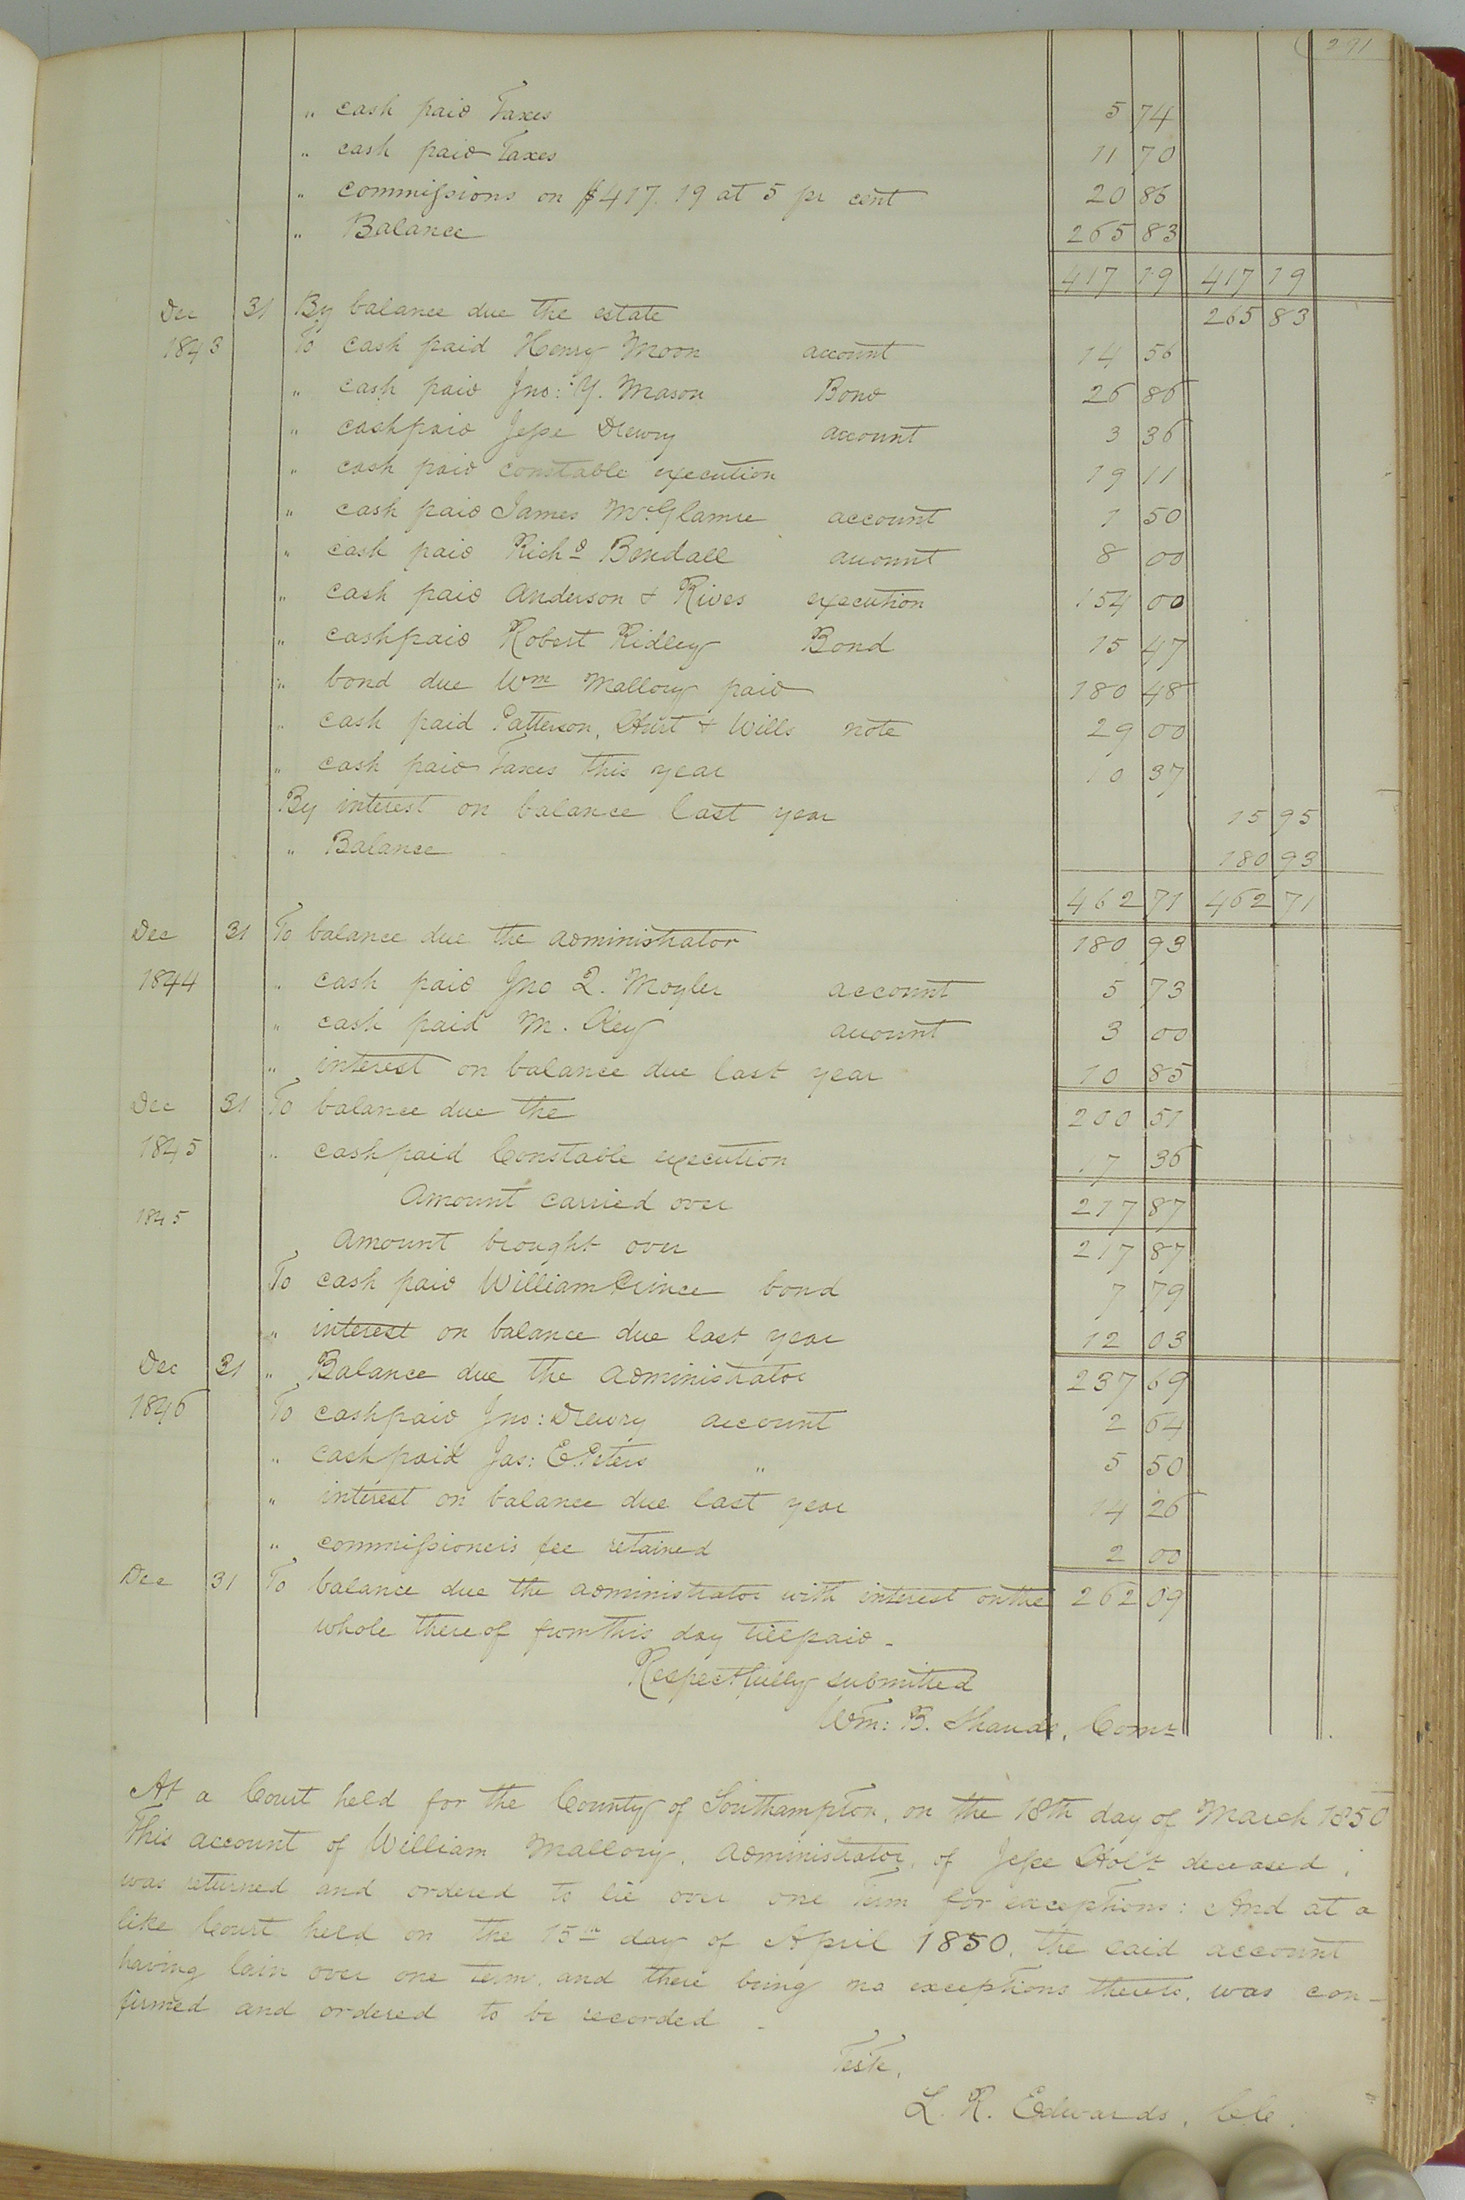 291
" cash paid Taxes 5 74
" cash paid Taxes 11 70
" commissions on $417.19 at 5 pr cent 20 86
" Balance 265 83
417 19 417 19
Dec 31 By balance due the estate 265 83
1843 To cash paid Henry Moon account 14 56
" cash paid Jno: Y. Mason Bond 26 86
" cash paid Jesse Drewry account 3 36
" cash paid constable execution 19 11
" cash paid James McGlamre account 1 50
" cash paid Richd Bendall account 8 00
" cash paid Anderson & Rives execution 154 00
" cash paid Robert Ridley Bond 15 47
" bond due Wm Mallory paid 180 48
" cash paid Patterson, Hurt & Wills note 29 00
" cash paid Taxes this year 10 37
By interest on balance last year 15 95
" Balance 180 93
462 71 462 71
Dec 31 To balance due the administrator 180 93
1844 " cash paid Jno Q. Moyler account 5 73
" cash paid M. Key account 3 00
" interest on balance due last year 10 85
Dec 31 To balance due the 200 51
1845 " cash paid Constable execution 17 36
Amount carried over 217 87
1845
Amount brought over 217 87
To cash paid William Prince bond 7 79
" interest on balance due last year 12 03
Dec 31 " Balance due the administrator 237 69
1846 To cash paid Jno: Drewry account 2 64
" cash paid Jas: E. Peters " 5 50
" interest on balance due last year 14 26
" commissioneis fee retained 2 00
Dec 31 To balance due the administrator with interest on the 262 09
whole thereof from this day till paid -
Respectfully submitted
Wm: B. Shands, Comr
At a Court held for the County of Southampton, on the 18th day of March 1850
This account of William Mallory, administrator, of Jesse Holt deceased,
was returned and ordered to lie over one Term for exceptions: And at a
like Court held on the 15th day of April 1850, the said account
having lain over one term, and there being no exceptions thereto, was con-
firmed and ordered to be recorded -
Teste,
L. R. Edwards, Clk.